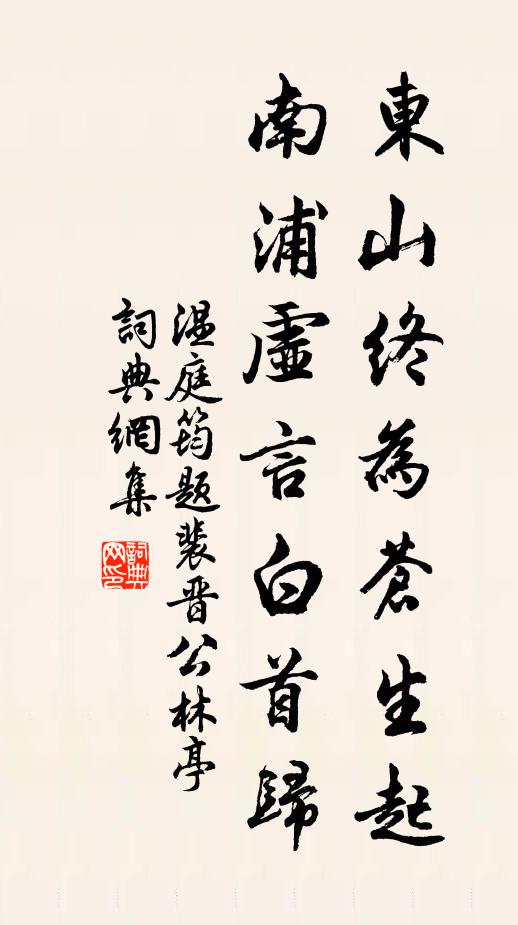 東山終為蒼生起
南浦虛言白首歸
温庭筠題裴晋公林亭
詞典網集
詞典网印